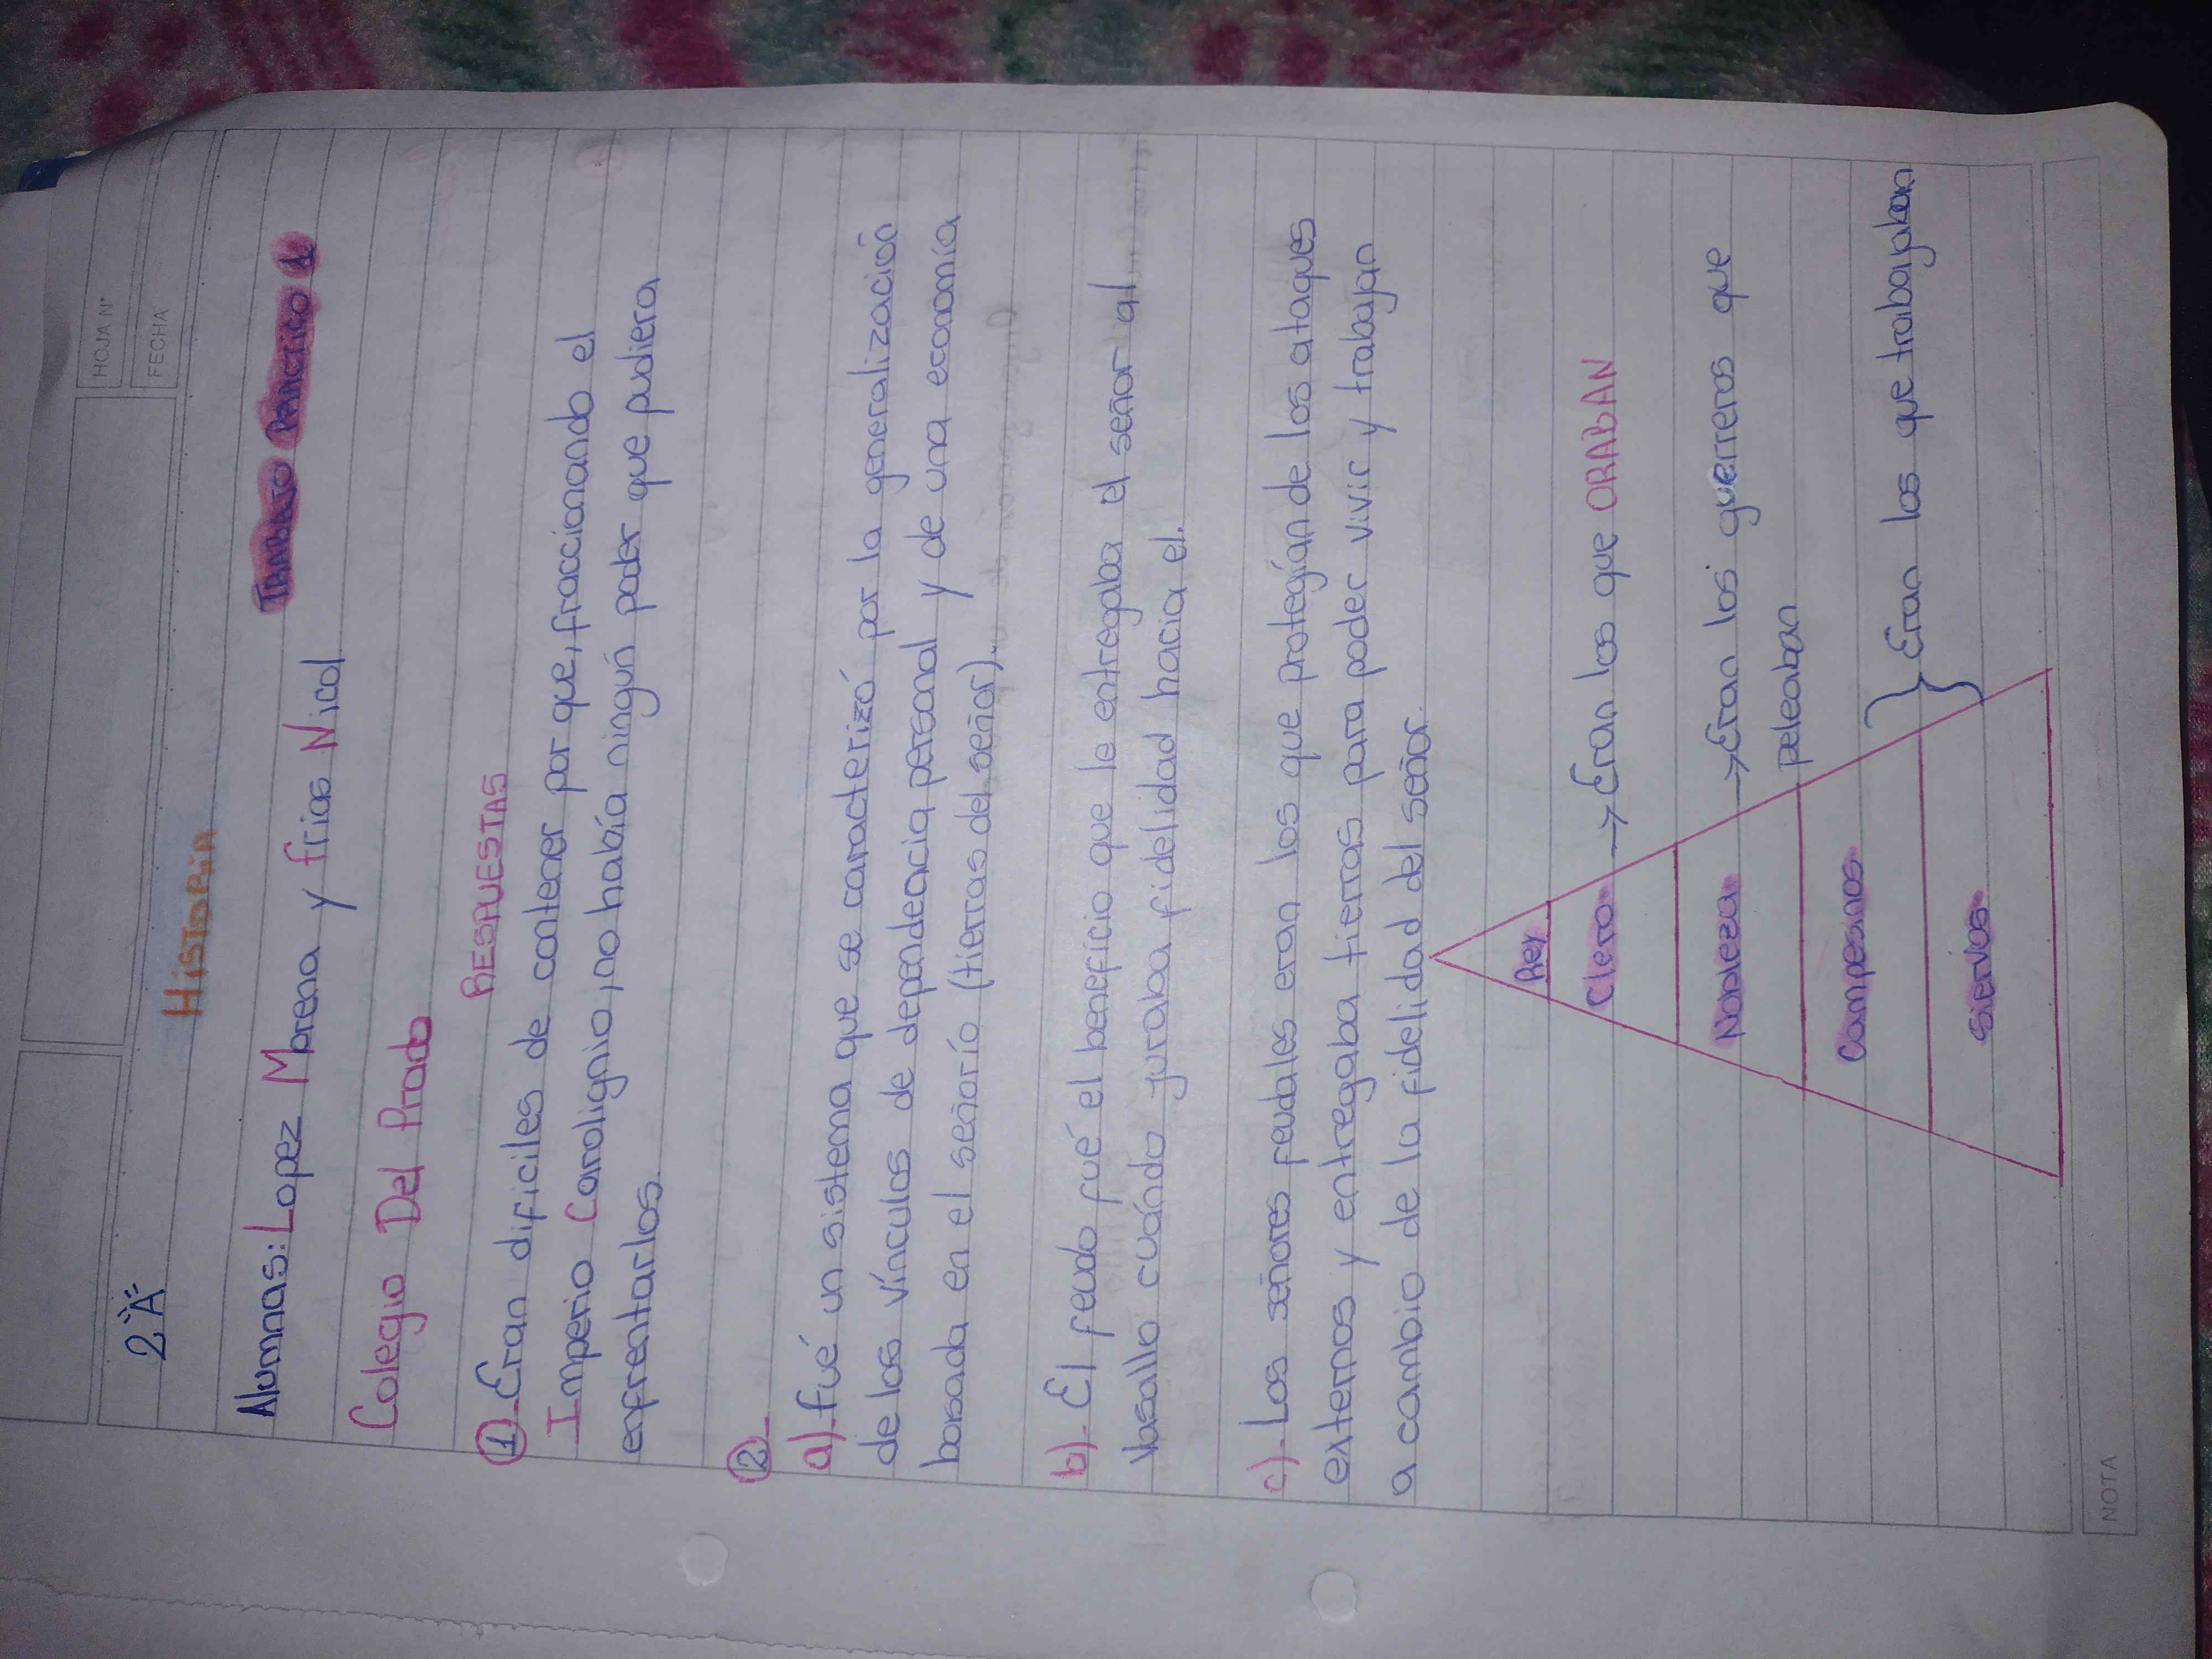 HOJA N°
FECHA
2°A
HISTORIA
TRABAJO PRACTICO 1
Alumnas: Lopez Morena y frias Nicol
Colegio Del Prado
RESPUESTAS
1_ Eran dificiles de contener por que, fraccionando el
Imperio Carolignio, no había ningún poder que pudiera
enfrentarlos.
2_
a)_ fué un sistema que se caracterizó por la generalización
de los vínculos de dependeacia personal y de una economía
basada en el señorío (tierras del señor).
b)_ El feudo fué el beneficio que le entregaba el señor al
vasallo cuándo juraba fidelidad hacia el.
c)_ Los señores feudales eran los que protegían de los ataques
externos y entregaba tierras para poder vivir y trabajan
a cambio de la fidelidad del señor.
Rey
Clero → Eran los que ORABAN
Nobleza → Eran los guerreros que
peleaban
Campesinos
} Eran los que trabajaban
siervos
NOTA